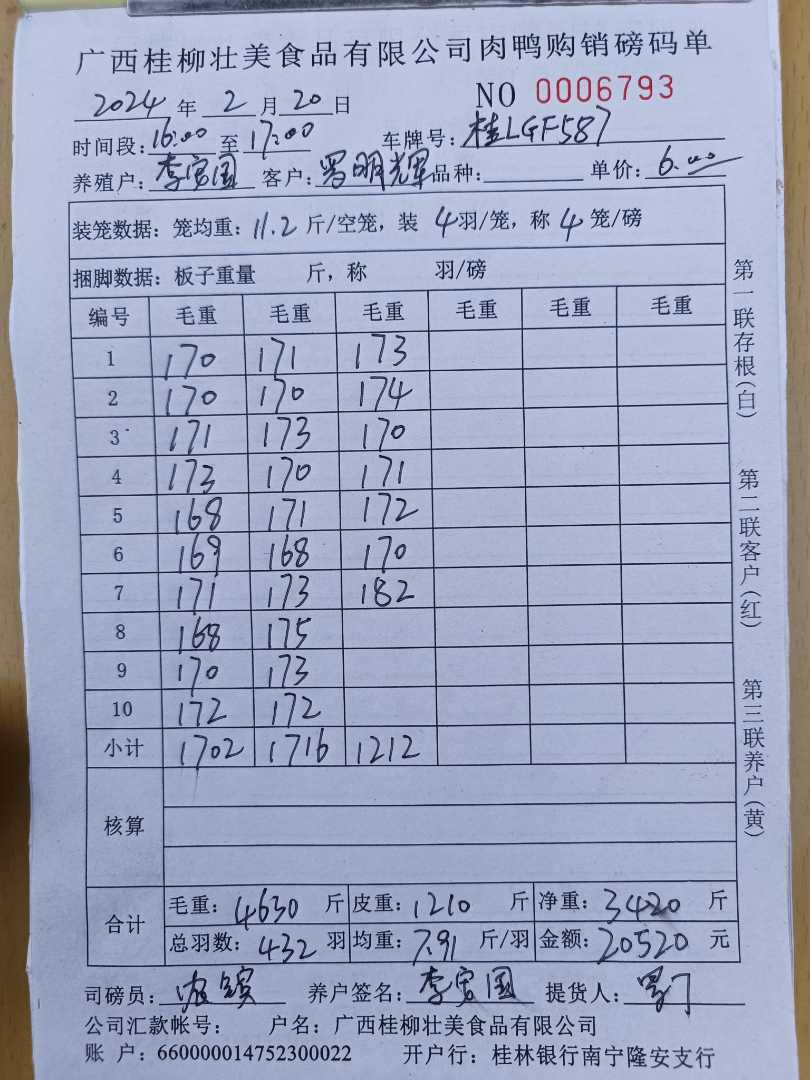 广西桂柳壮美食品有限公司肉鸭购销磅码单
2024年2月20日 NO 0006793
时间段:16:00至17:00 车牌号:桂LGF587
养殖户:李宽国 客户:罗明辉 品种: 单价:6.00
装笼数据:笼均重:11.2斤/空笼,装4羽/笼,称4笼/磅
捆脚数据:板子重量 斤,称 羽/磅
编号 毛重 毛重 毛重 毛重 毛重 毛重
1 170 171 173
2 170 170 174
3 171 173 170
4 173 170 171
5 168 171 172
6 169 168 170
7 171 173 182
8 168 175
9 170 173
10 172 172
小计 1702 1716 1212
核算
合计 毛重:4630斤 皮重:1210斤 净重:3420斤
总羽数:432羽 均重:7.91斤/羽 金额:20520元
司磅员: 养户签名:李宽国 提货人:
公司汇款帐号: 户名:广西桂柳壮美食品有限公司
账 户:660000014752300022 开户行:桂林银行南宁隆安支行
第一联存根(白)
第二联客户(红)
第三联养户(黄)